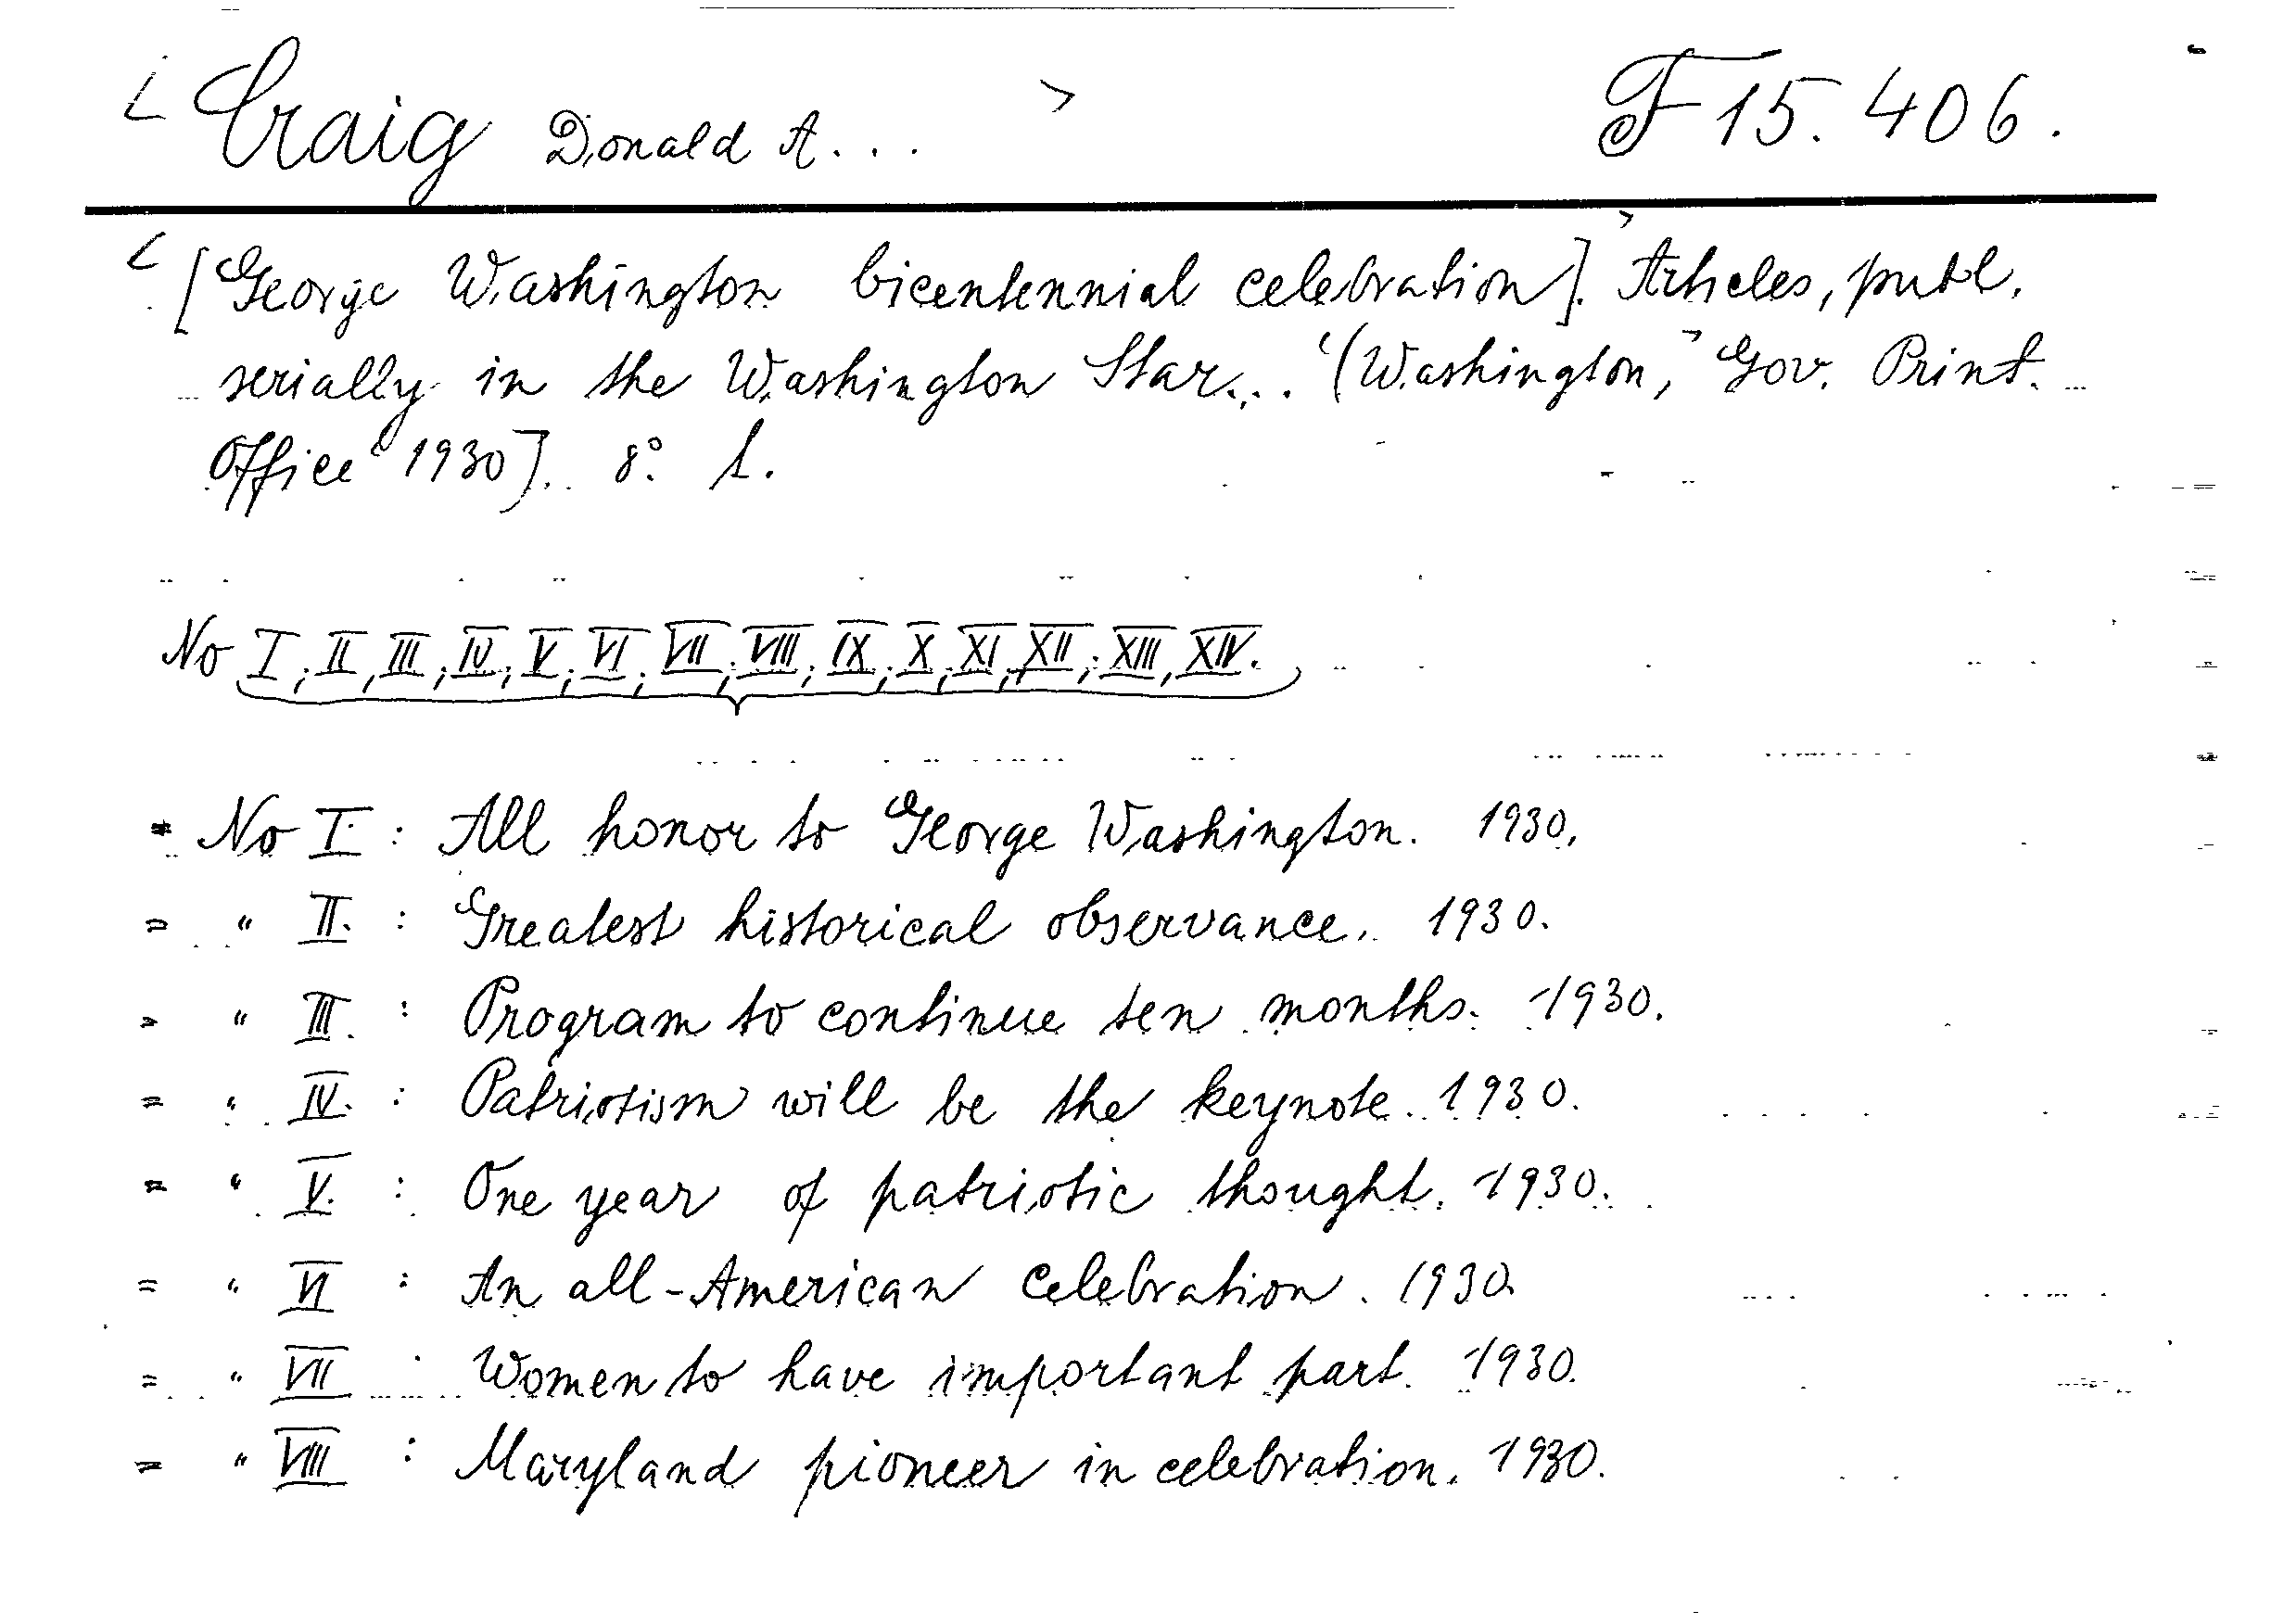 < Craig Donald A... > F 15.406.
< [George Washington bicentennial celebration]. > Articles, publ.
serially in the Washington Star... < (Washington, > Gov. Print.
Office < 1930]. 8° 1.
No I; II, III; IV; V; VI; VII; VIII; IX; X; XI; XII; XIII, XIV.
= No I. : All honor to George Washington. 1930.
= " II. : Greatest historical observance. 1930.
= " III. : Program to continue ten months. 1930.
= " IV. : Patriotism will be the keynote. 1930.
= " V. : One year of patriotic thought. 1930.
= " VI : An all-American celebration. 1930.
= " VII : Women to have important part. 1930.
= " VIII : Maryland pioneer in celebration. 1930.